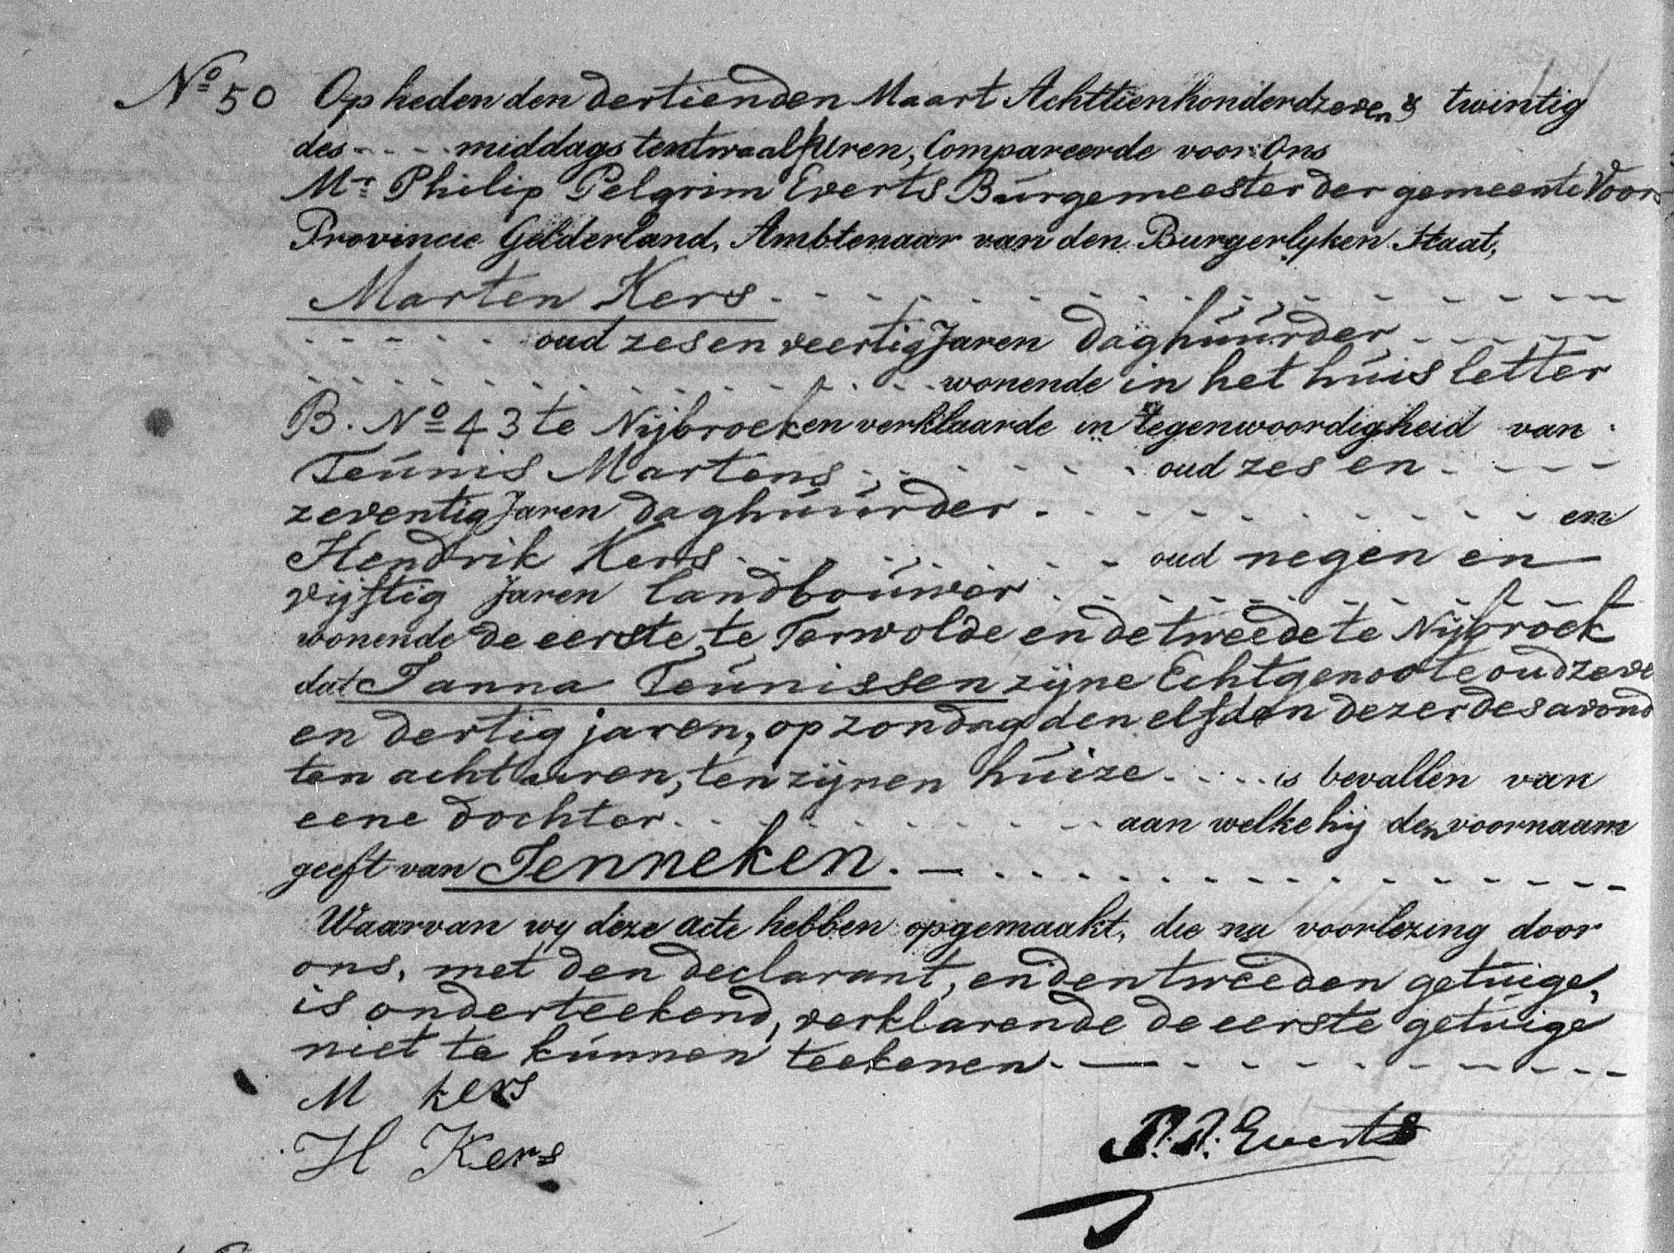 No 50 Op heden den dertienden Maart Achttienhonderdzeven & twintig
des - - - - middags ten twaalf uren, Compareerde voor Ons
Mr Philip Pelgrim Everts Burgemeester der gemeente Voor
Provincie Gelderland, Ambtenaar van den Burgerlyken Staat,
Marten Kers
oud zes en veertig Jaren daghuurder
wonende in het huis letter
B. No 43 te Nijbroek en verklaarde in tegenwoordigheid van
Teunis Martens oud zes en
zeventig Jaren daghuurder en
Hendrik Kers oud negen en
vijftig Jaren landbouwer
wonende de eerste te Terwolde en de tweede te Nijbroek
dat Janna Teunissen zijne Echtgenoote oud zeve
en dertig jaren, op zondag den elfden dezer des avond
ten acht uren, ten zijnen huize is bevallen van
eene dochter aan welke hij den voornaam
geeft van Jenneken.
Waarvan wy deze acte hebben opgemaakt, die na voorlezing door
ons, met den declarant, en den tweeden getuige,
is onderteekend, verklarende de eerste getuige
niet te kunnen teekenen
M kers
H Kers
P. P. Everts